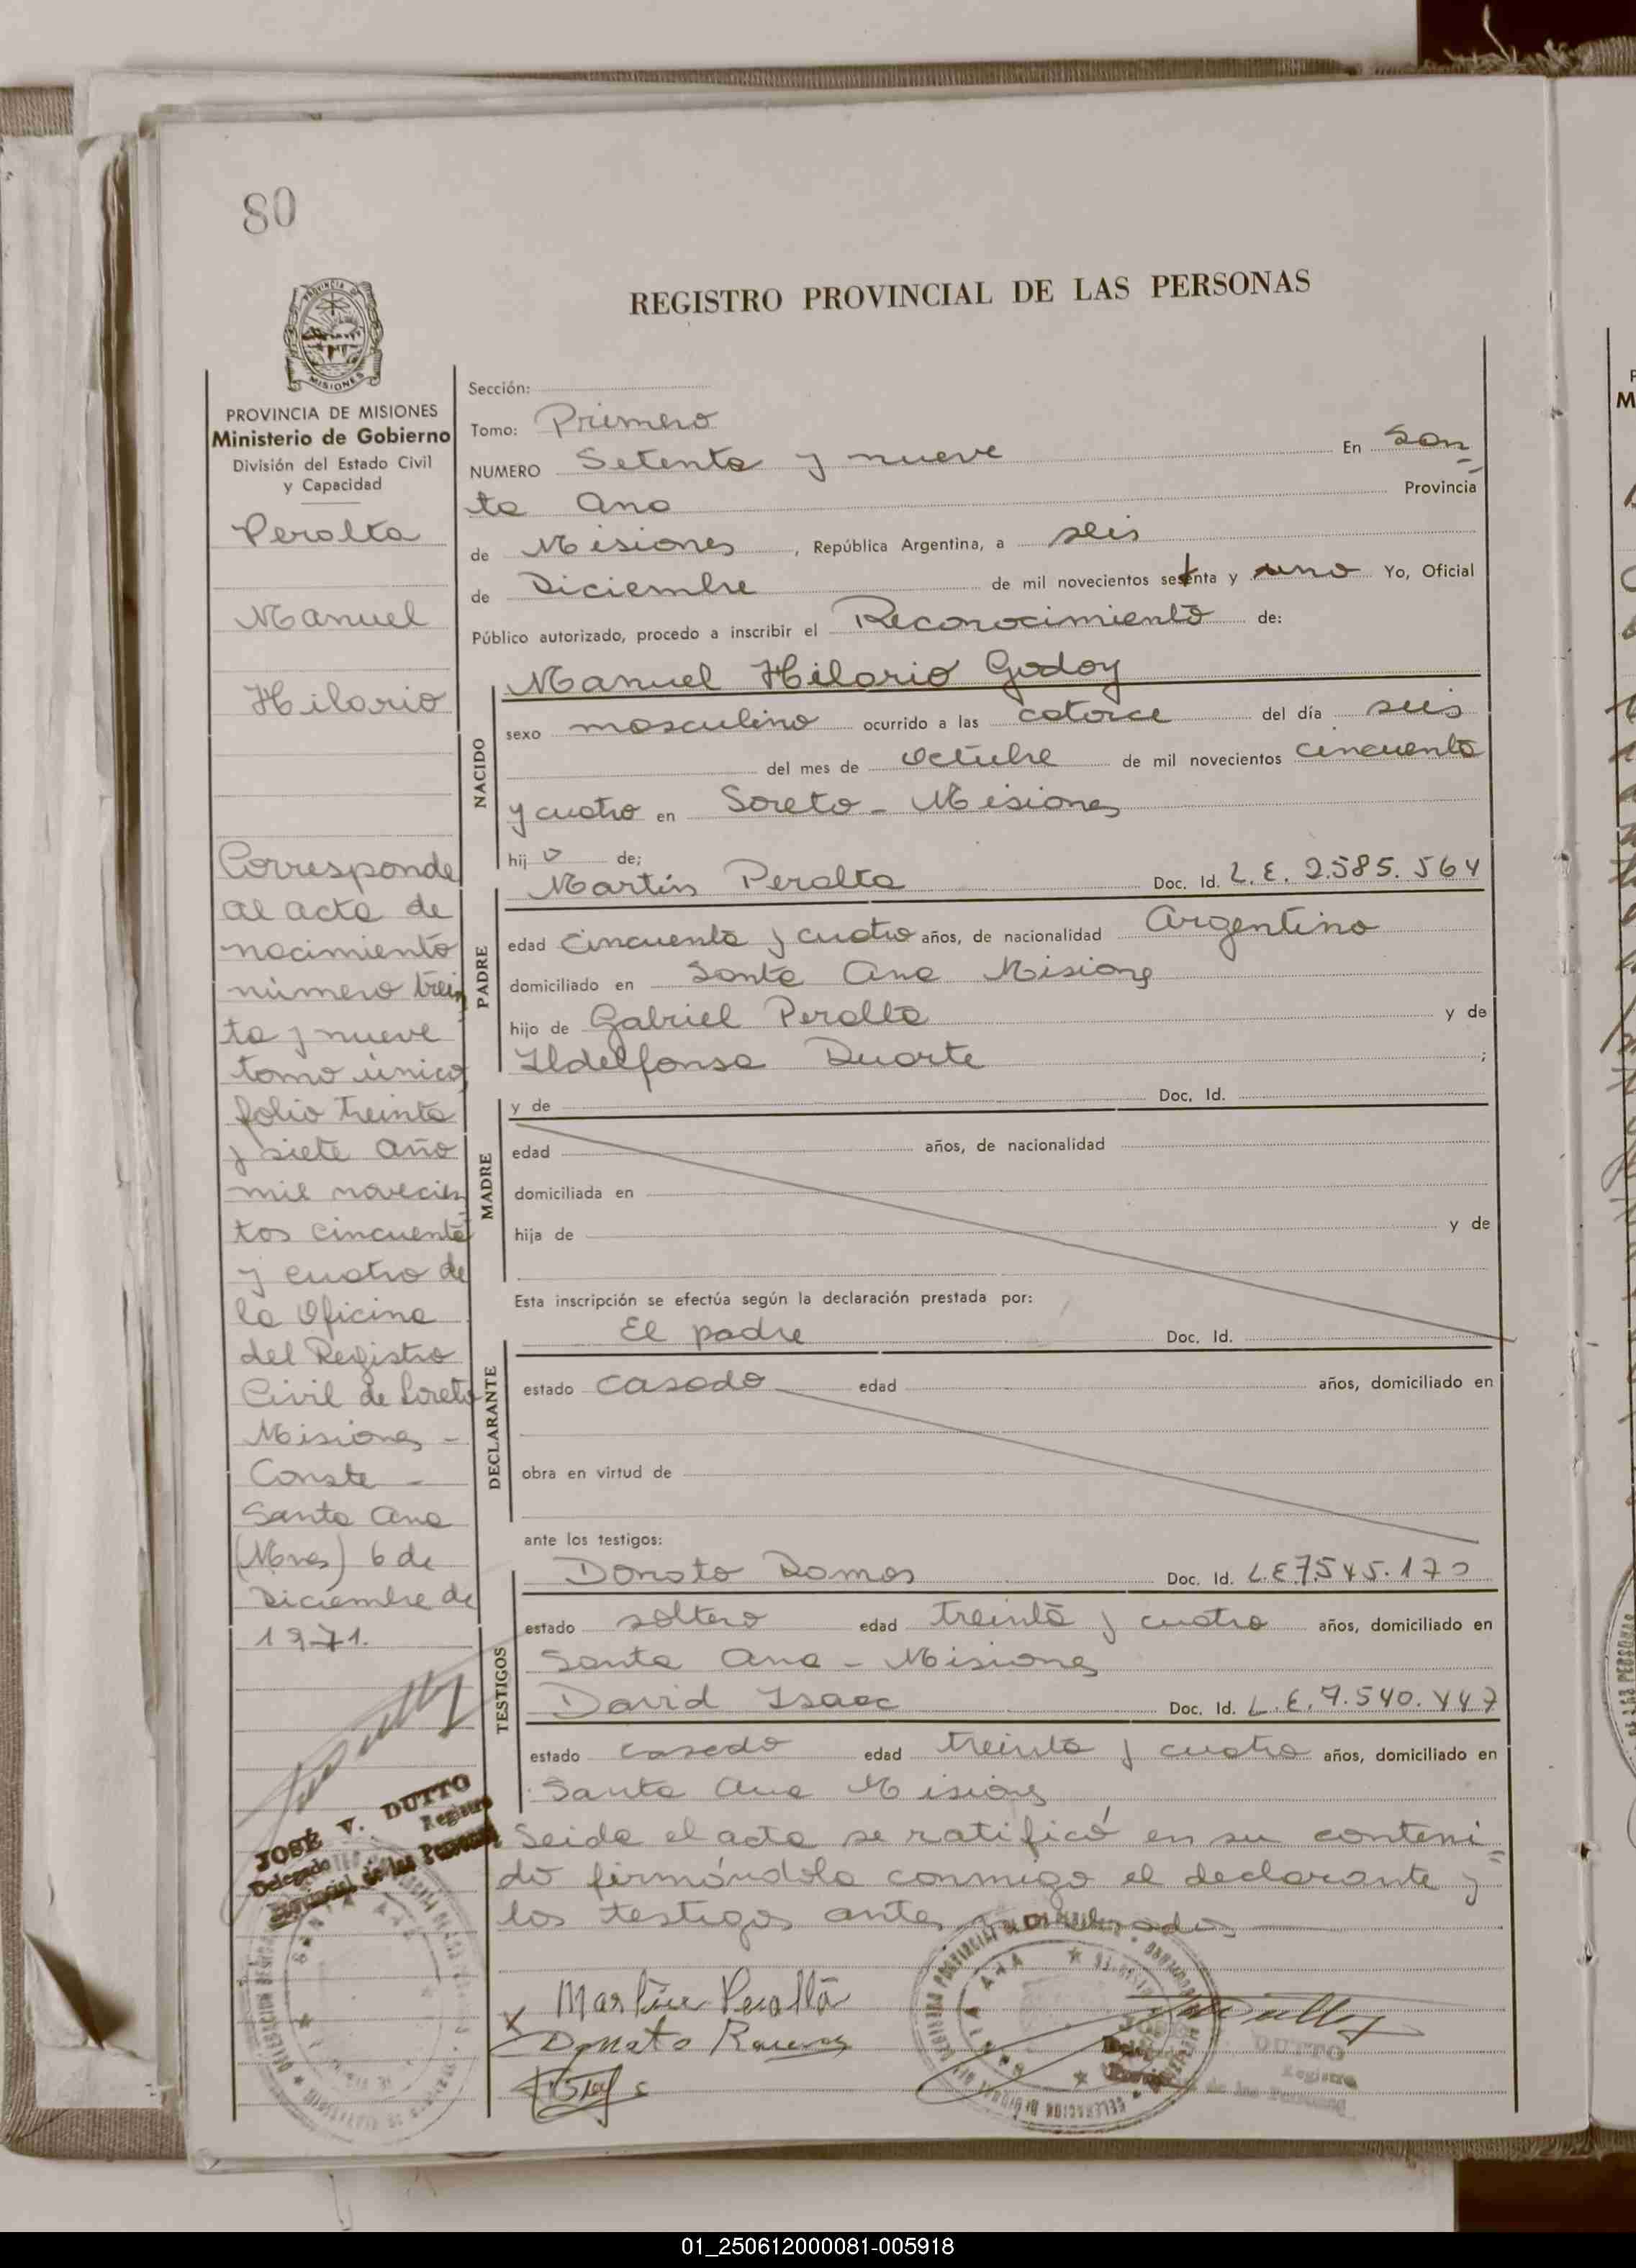 80
REGISTRO PROVINCIAL DE LAS PERSONAS
PROVINCIA DE MISIONES
Ministerio de Gobierno
División del Estado Civil
y Capacidad
Peralta
Manuel
Hilario
Corresponde
al acta de
nacimiento
número trein
ta y nueve
tomo único
folio treinta
y siete año
mil novecien
tos cincuenta
y cuatro de
la Oficina
del Registro
Civil de Loreto
Misiones -
Conste -
Santa Ana
(Mnes) 6 de
Diciembre de
1971.
JOSÉ V. DUTTO
Delegado Registro
Provincial de las Personas
Sección:
Tomo: Primero
NUMERO Setenta y nueve En San
ta Ana Provincia
de Misiones, República Argentina, a seis
de Diciembre de mil novecientos setenta y uno Yo, Oficial
Público autorizado, procedo a inscribir el Reconocimiento de:
NACIDO
Manuel Hilario Godoy
sexo masculino ocurrido a las catorce del día seis
del mes de octubre de mil novecientos cincuenta
y cuatro en Loreto - Misiones
hijo de;
PADRE
Martín Peralta Doc. Id. L.E. 2.585.564
edad cincuenta y cuatro años, de nacionalidad Argentino
domiciliado en Santa Ana Misiones
hijo de Gabriel Peralta y de
Ildelfonsa Duarte ;
MADRE
y de Doc. Id.
edad años, de nacionalidad
domiciliada en
hija de y de
Esta inscripción se efectúa según la declaración prestada por:
DECLARANTE
El padre Doc. Id.
estado casado edad años, domiciliado en
obra en virtud de
ante los testigos:
TESTIGOS
Donato Ramos Doc. Id. L.E. 7.545.170
estado soltero edad treinta y cuatro años, domiciliado en
Santa Ana - Misiones
David Isaac Doc. Id. L.E. 7.540.447
estado casado edad treinta y cuatro años, domiciliado en
Santa Ana Misiones
Leida el acta se ratificó en su conteni
do firmándola conmigo el declarante y
los testigos antes
Martin Peralta
Donato Ramos
SANTA ANA
DUTTO
Registro
de las Personas
01_250612000081-005918